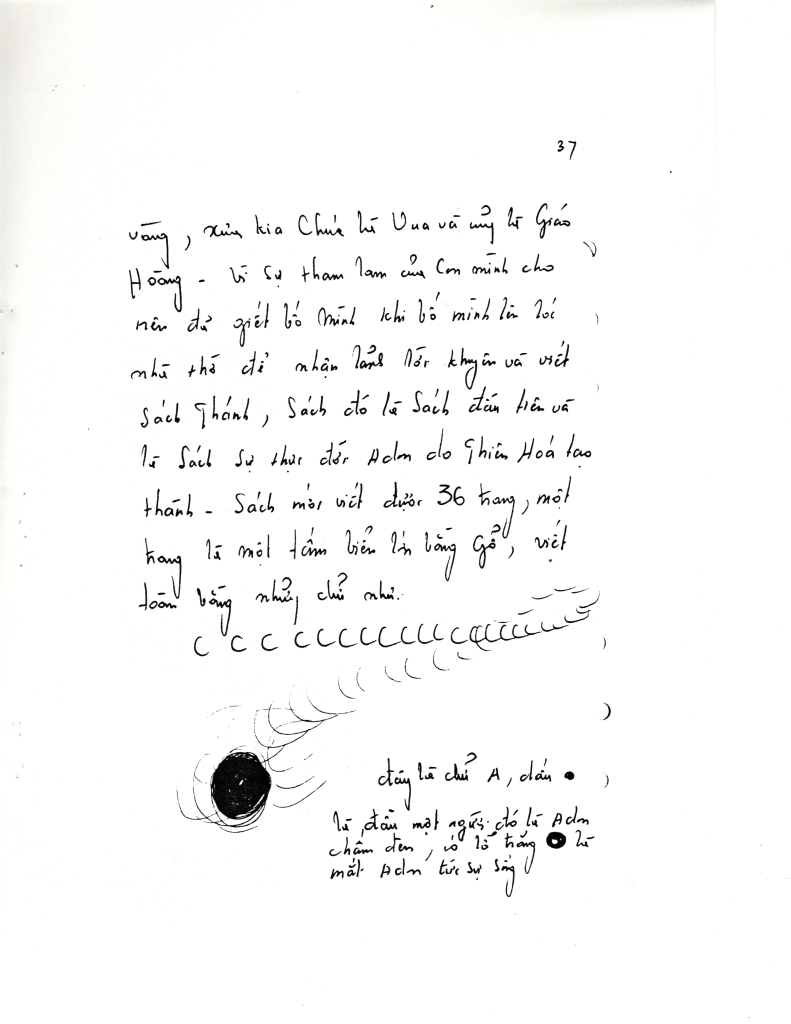 37
vàng, xưa kia Chúa là Vua và cũng là Giáo
Hoàng - Vì sự tham lam của con mình cho
nên đã giết bố mình khi bố mình lên lúc
như thế để nhận lãnh lời khuyên và viết
Sách Thánh, Sách đó là Sách đầu tiên và
là Sách sự thực đời Adn do Thiên Hoá tạo
thành - Sách mới viết được 36 trang, một
trang là một tấm biển lớn bằng Gỗ, viết
toàn bằng những chữ như.
C C C C C C C C C C C C
đây là chữ A, dấu ●
là đầu một người đó là Adn
chấm đen, có lỗ trắng là
mắt Adn tức sự sống